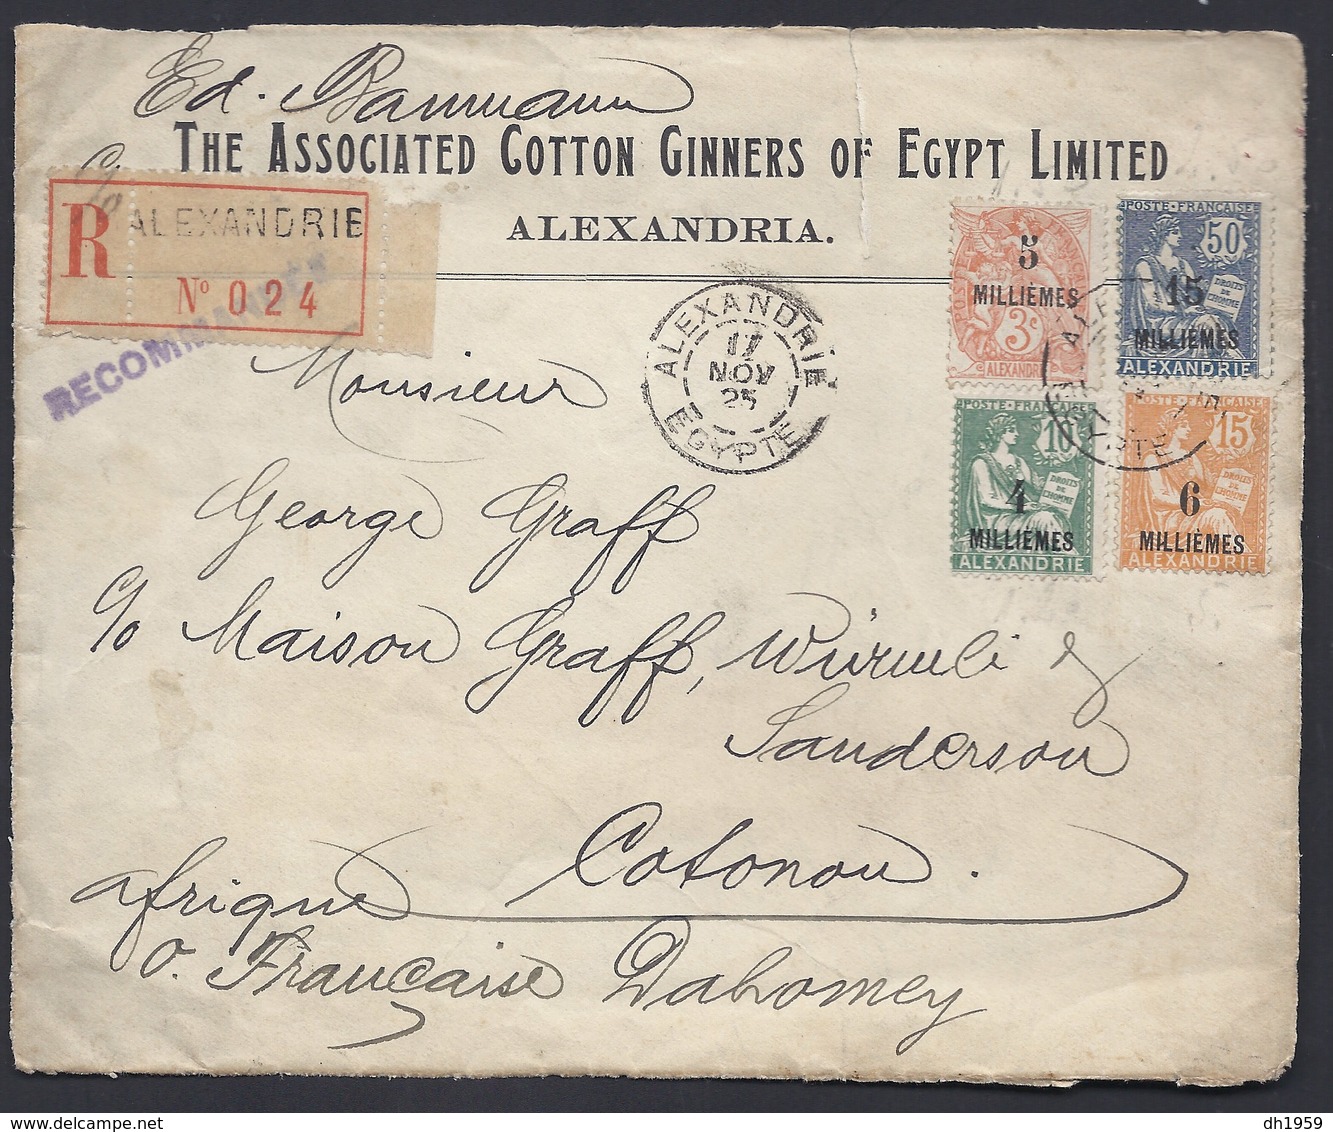 Ed. Baumann
THE ASSOCIATED COTTON GINNERS OF EGYPT LIMITED
ALEXANDRIA.
R ALEXANDRIE
No 024
RECOMMANDÉ
ALEXANDRIE
17
NOV
25
EGYPTE
5
MILLIÈMES
3c
ALEXANDRIE
POSTE·FRANÇAISE
50
DROITS
DE
L'HOMME
15
MILLIÈMES
ALEXANDRIE
POSTE·FRANÇAISE
10
DROITS
DE
L'HOMME
4
MILLIÈMES
ALEXANDRIE
POSTE·FRANÇAISE
15
DROITS
DE
L'HOMME
6
MILLIÈMES
ALEXANDRIE
Monsieur
George Graff
c/o Maison Graff, Würmli &
Sanderson
Cotonou.
Afrique
o. Française Dahomey
dh1959